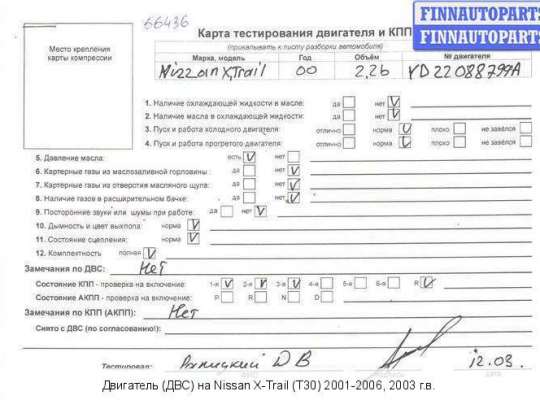 66436
Карта тестирования двигателя и КПП
FINNAUTOPARTS
FINNAUTOPARTS
(прикалывать к листу разборки автомобиля)
Место крепления карты компрессии
Марка, модель Год Объём № двигателя
Nissan XTrail 00 2,2б YD22088799A
1. Наличие охлаждающей жидкости в масле: да нет V
2. Наличие масла в охлаждающей жидкости: да нет V
3. Пуск и работа холодного двигателя: отлично норма V плохо не завёлся
4. Пуск и работа прогретого двигателя: отлично норма V плохо не завёлся
5. Давление масла: есть V нет
6. Картерные газы из маслозаливной горловины: да нет V
7. Картерные газы из отверстия масляного щупа: да нет V
8. Наличие газов в расширительном бачке: да нет V
9. Посторонние звуки или шумы при работе: да нет V
10. Дымность и цвет выхлопа: норма V
11. Состояние сцепления: норма V
12. Комплектность полная V
Замечания по ДВС: Нет
Состояние КПП - проверка на включение: 1-я V 2-я V 3-я V 4-я 5-я 6-я R V
Состояние АКПП - проверка на включение: P R N D
Замечания по КПП (АКПП): Нет
Снято с ДВС (по согласованию!):
Тестировал: ДВ 12.03.
Двигатель (ДВС) на Nissan X-Trail (T30) 2001-2006, 2003 г.в.